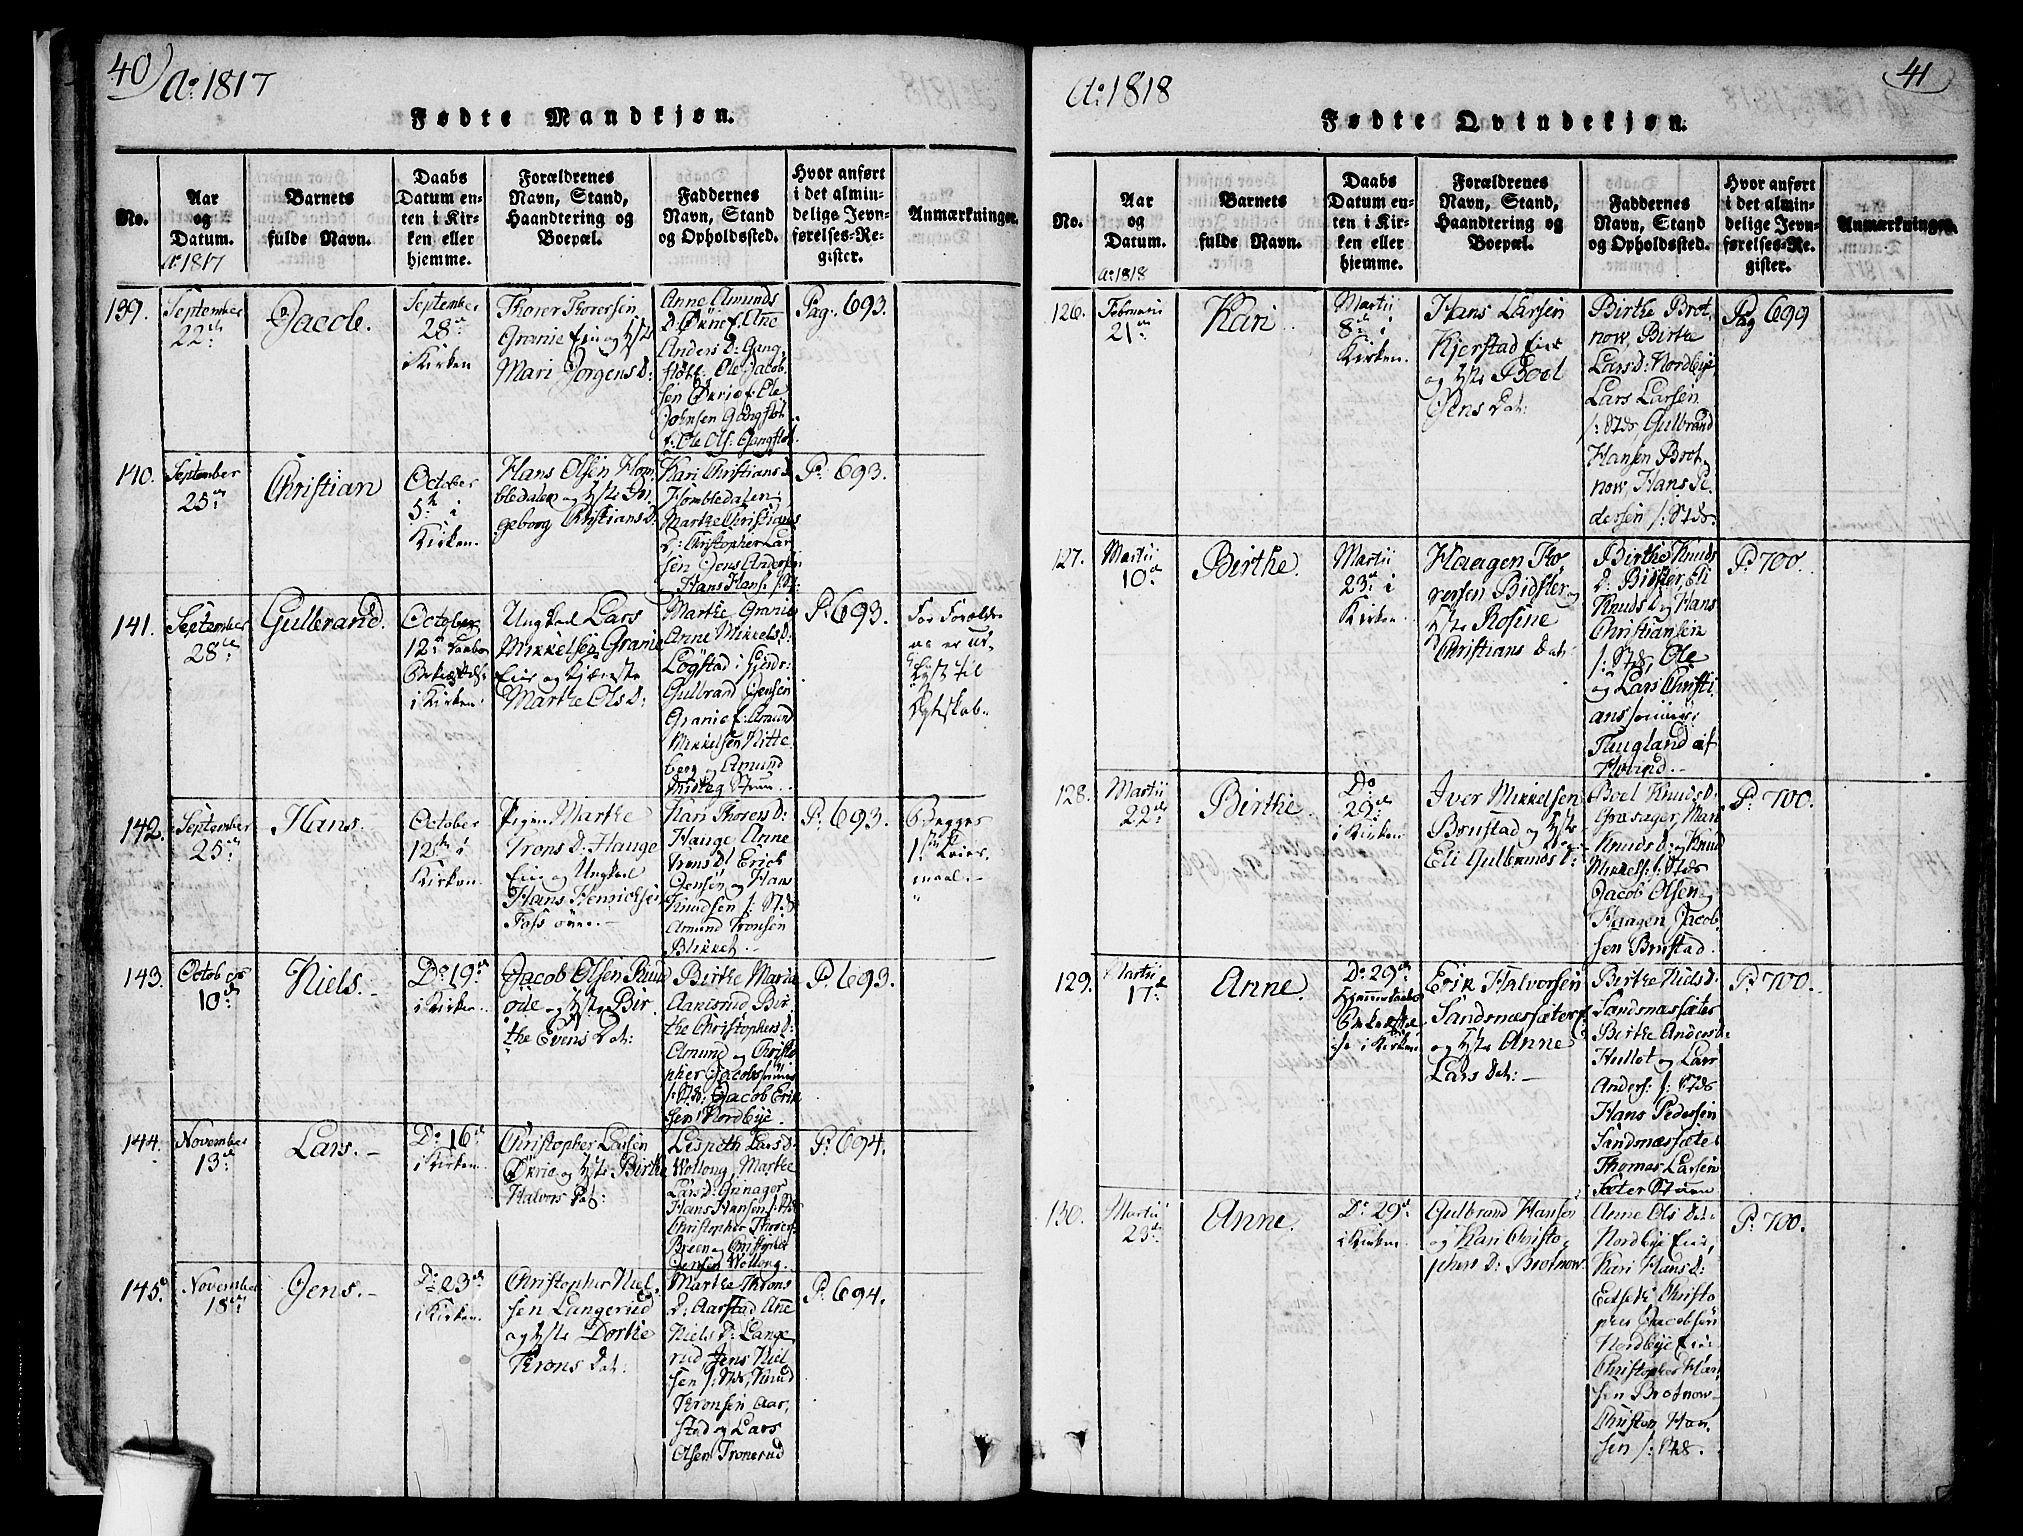 40
Ao 1817
Fødte Mandkjøn.
No.
Aar
og
Datum.
Ao 1817
Barnets
fulde Navn.
Daabs
Datum en-
ten i Kir-
ken eller
hjemme.
Forældrenes
Navn, Stand,
Haandtering og
Boepæl.
Faddernes
Navn, Stand
og Opholdssted.
Hvor anført
i det almin-
delige Jevn-
førelses-Re-
gister.
Anmærkninger.
139.
September
22de
Jacob.
September
28de
i Kirken
Thorer Thoresen
Granie Eie og Hste
Mari Jørgens D:
Anne Amunds
D. Økrie f. Ane
Anders D: Gang
fløtt: Ole Jacob
sen Økrie f. Ole
Johnsen Gangfløt
f: Ole Ols: Gangfløt.
Pag. 693.
140.
September
25de
Christian
October
5te i
Kirken.
Hans Olsen Hom
bledalen og Hste In
geborg Christians D:
Kari Christians D
Hombledalen
Marthe Christians
D: Christopher Lar
sen Jens Anders
Hans Hans:
P: 693.
141.
September
28de
Gulbrand.
October
12te
i Kirken.
Ungkal Lars
Mikkelsen Granie
Eie og Kjæreste
Marthe Ols D:
Marthe Granie
Anne Mikkels D:
Løgstad i
Gulbrand Jensen
Granie f: Amund
Mikkelsen Nitte
berg og Amund
P: 693.
For Foreldre
ne er ud
lyst til
Egteskab.
142.
September
25de
Hans.
October
12te i
Kirken.
Pigen Marthe
Trons D: Hauge
Eie og Ungkal
Hans Henrichsen
Kari Thorers D:
Hauge Anne
Trons D: Erich
Jensen og Hans
Knudsen f: Stds
Amund Tronsen
Blikket.
P: 693.
Begges
1ste Leier
maal.
143.
October
10de
Niels.
Do 19de
i Kirken.
Jacob Olsen Ruud
øde og Hste Bir
the Evens Dat:
Birthe Marie
Aamodrud Bir
the Christophers D:
Amund og Christo
pher Jacobs sønner
f: Stds: Jacob Erik
sen Nordbye.
P: 693.
144.
November
13de
Lars.
Do 16de
i Kirken.
Christopher Larsen
Økrie og Hste Birthe
Halvors Dat:
Lisbeth Lars D:
Wollong, Marthe
Lars D: Grinager
Hans Hansen f: Stds
Christopher Thorers:
Breen og Christopher
Jensen Wollong.
P: 694.
145.
November
18de
Jens.
Do 23de
i Kirken.
Christopher Niel
sen Langerud
og Hste Dorthe
Throns Dat:
Marthe Throns
D: Aarstad Ane
Niels D: Lange
rud, Jens Niel
sen f: Stds, Knud
Thronsen Aar
stad og Lars
Olsen Tronerud
P: 694.
41
Ao 1818
Fødte Qvindekjøn.
No.
Aar
og
Datum.
Ao 1818
Barnets
fulde Navn.
Daabs
Datum en-
ten i Kir-
ken eller
hjemme.
Forældrenes
Navn, Stand,
Haandtering og
Boepæl.
Faddernes
Navn, Stand
og Opholdssted.
Hvor anført
i det almin-
delige Jevn-
førelses-Re-
gister.
Anmærkninger.
126.
Februarii
21de
Kari
Martii
8de i
Kirken.
Hans Larsen
Kjerstad Eie
og Hste Boel
Jens Dat:
Birthe Brot
now, Birthe
Lars D: Nordbye,
Lars Larsen
f: Stds, Gulbrand
Hansen Brot
now, Hans Pe
dersen f: Stds.
Pag 699
127.
Martii
10de
Birthe.
Martii
23de i
Kirken.
Haagen Tho
resen Bidster og
Hste Rosine
Christians Dat:
Birthe Knuds
D: Bidster, Eli
Knuds D og Hans
Christiansen
f: Stds, Ole
og Lars Christi
ans sønner
Haugland af
Hovind.
P: 700.
128.
Martii
22de
Birthe.
Do
29de
i Kirken.
Iver Mikkelsen
Brustad og Hste
Eli Gulbrands D:
Boel Knuds D:
Græsager, Mari
Knuds D: og Knud
Mikkels: f: Stds
Jacob Olsen og
Haagen Jacob
sen Brustad.
P: 700.
129.
Martii
17de
Anne.
Do 29de
Hjemmedøbt
i Kirken
Erik Halvorsen
Sandsnæssæter
og Hste Anne
Lars Dat:
Birthe Niels D:
Sandsnæssæter
Birthe Anders D:
Hullet og Lars
Anders: f: Stds
Hans Pedersen
Sandsnæssæte
Thomas Larsen
Sæter Stuen
P: 700.
130.
Martii
23de
Anne.
Do 29de
i Kirken.
Gulbrand Hansen
og Kari Christo
phers D: Brotnow.
Anne Ols Dat:
Nordbye Eie,
Kari Hans D:
Edseth Christo
pher Jacobsen
Nordbye Eie
Christopher Han
sen Brotnow
Christen Han
sen f: Stds.
P: 700.